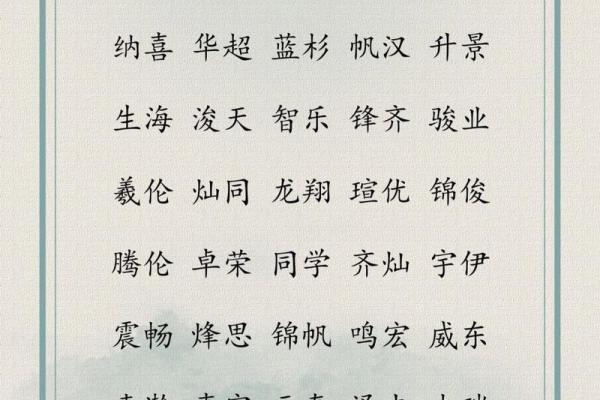 纳喜 华超 蓝杉 帆汉 升景
生海 浚天 智乐 锋齐 骏业
羲伦 灿同 龙翔 瑄优 锦俊
腾伦 卓荣 同学 齐灿 宇伊
震畅 烽思 锦帆 鸣宏 威东